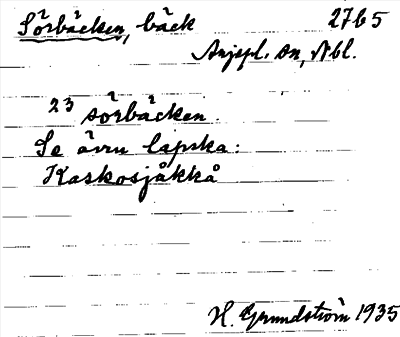 Sörbäcken, bäck 2765
Anjspl. sn, Nbl.
23 sörbäcken.
Se ävru lapska:
Kaskosjåkkå
H. Grundström 1935